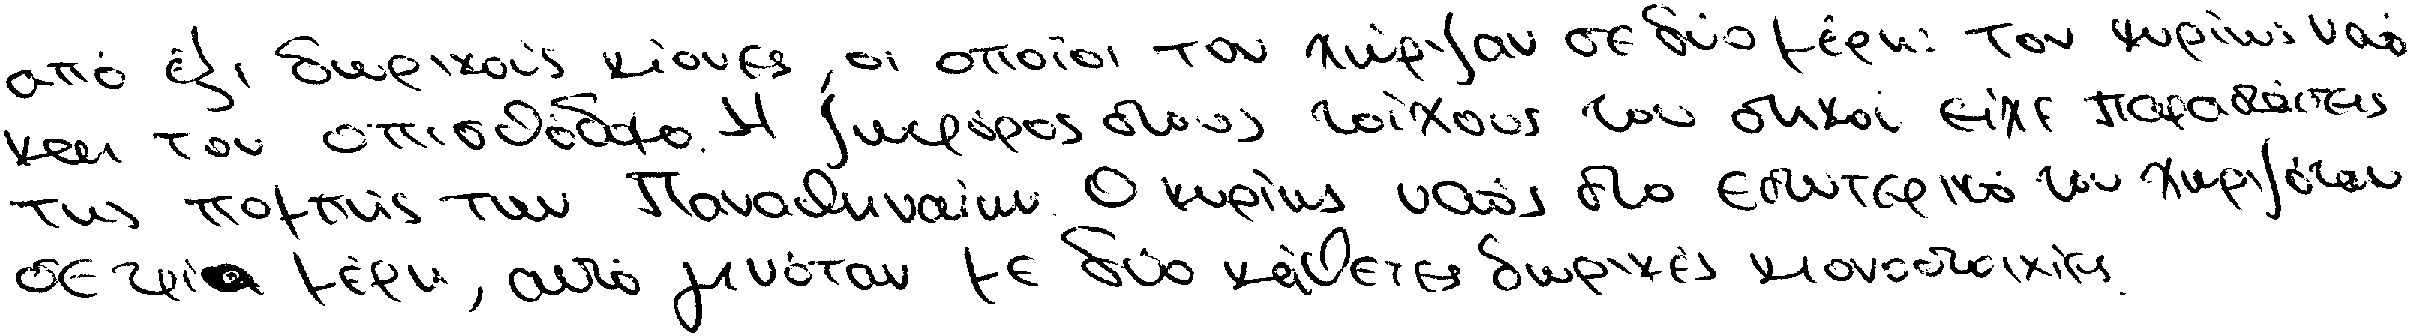 από έξι δωρικούς κίονες, οι οποίοι τον χώριζαν σε δύο μέρη: τον κυρίως ναό
και τον οπισθόδομο. Η ζωφόρος στους τοίχους του σηκού είχε παραστάσεις
της πομπής των Παναθηναίων. Ο κυρίως ναός στο εσωτερικό του χωριζόταν
σε τρία μέρη, αυτό γινόταν με δύο κάθετες δωρικές κιονοστοιχίες.